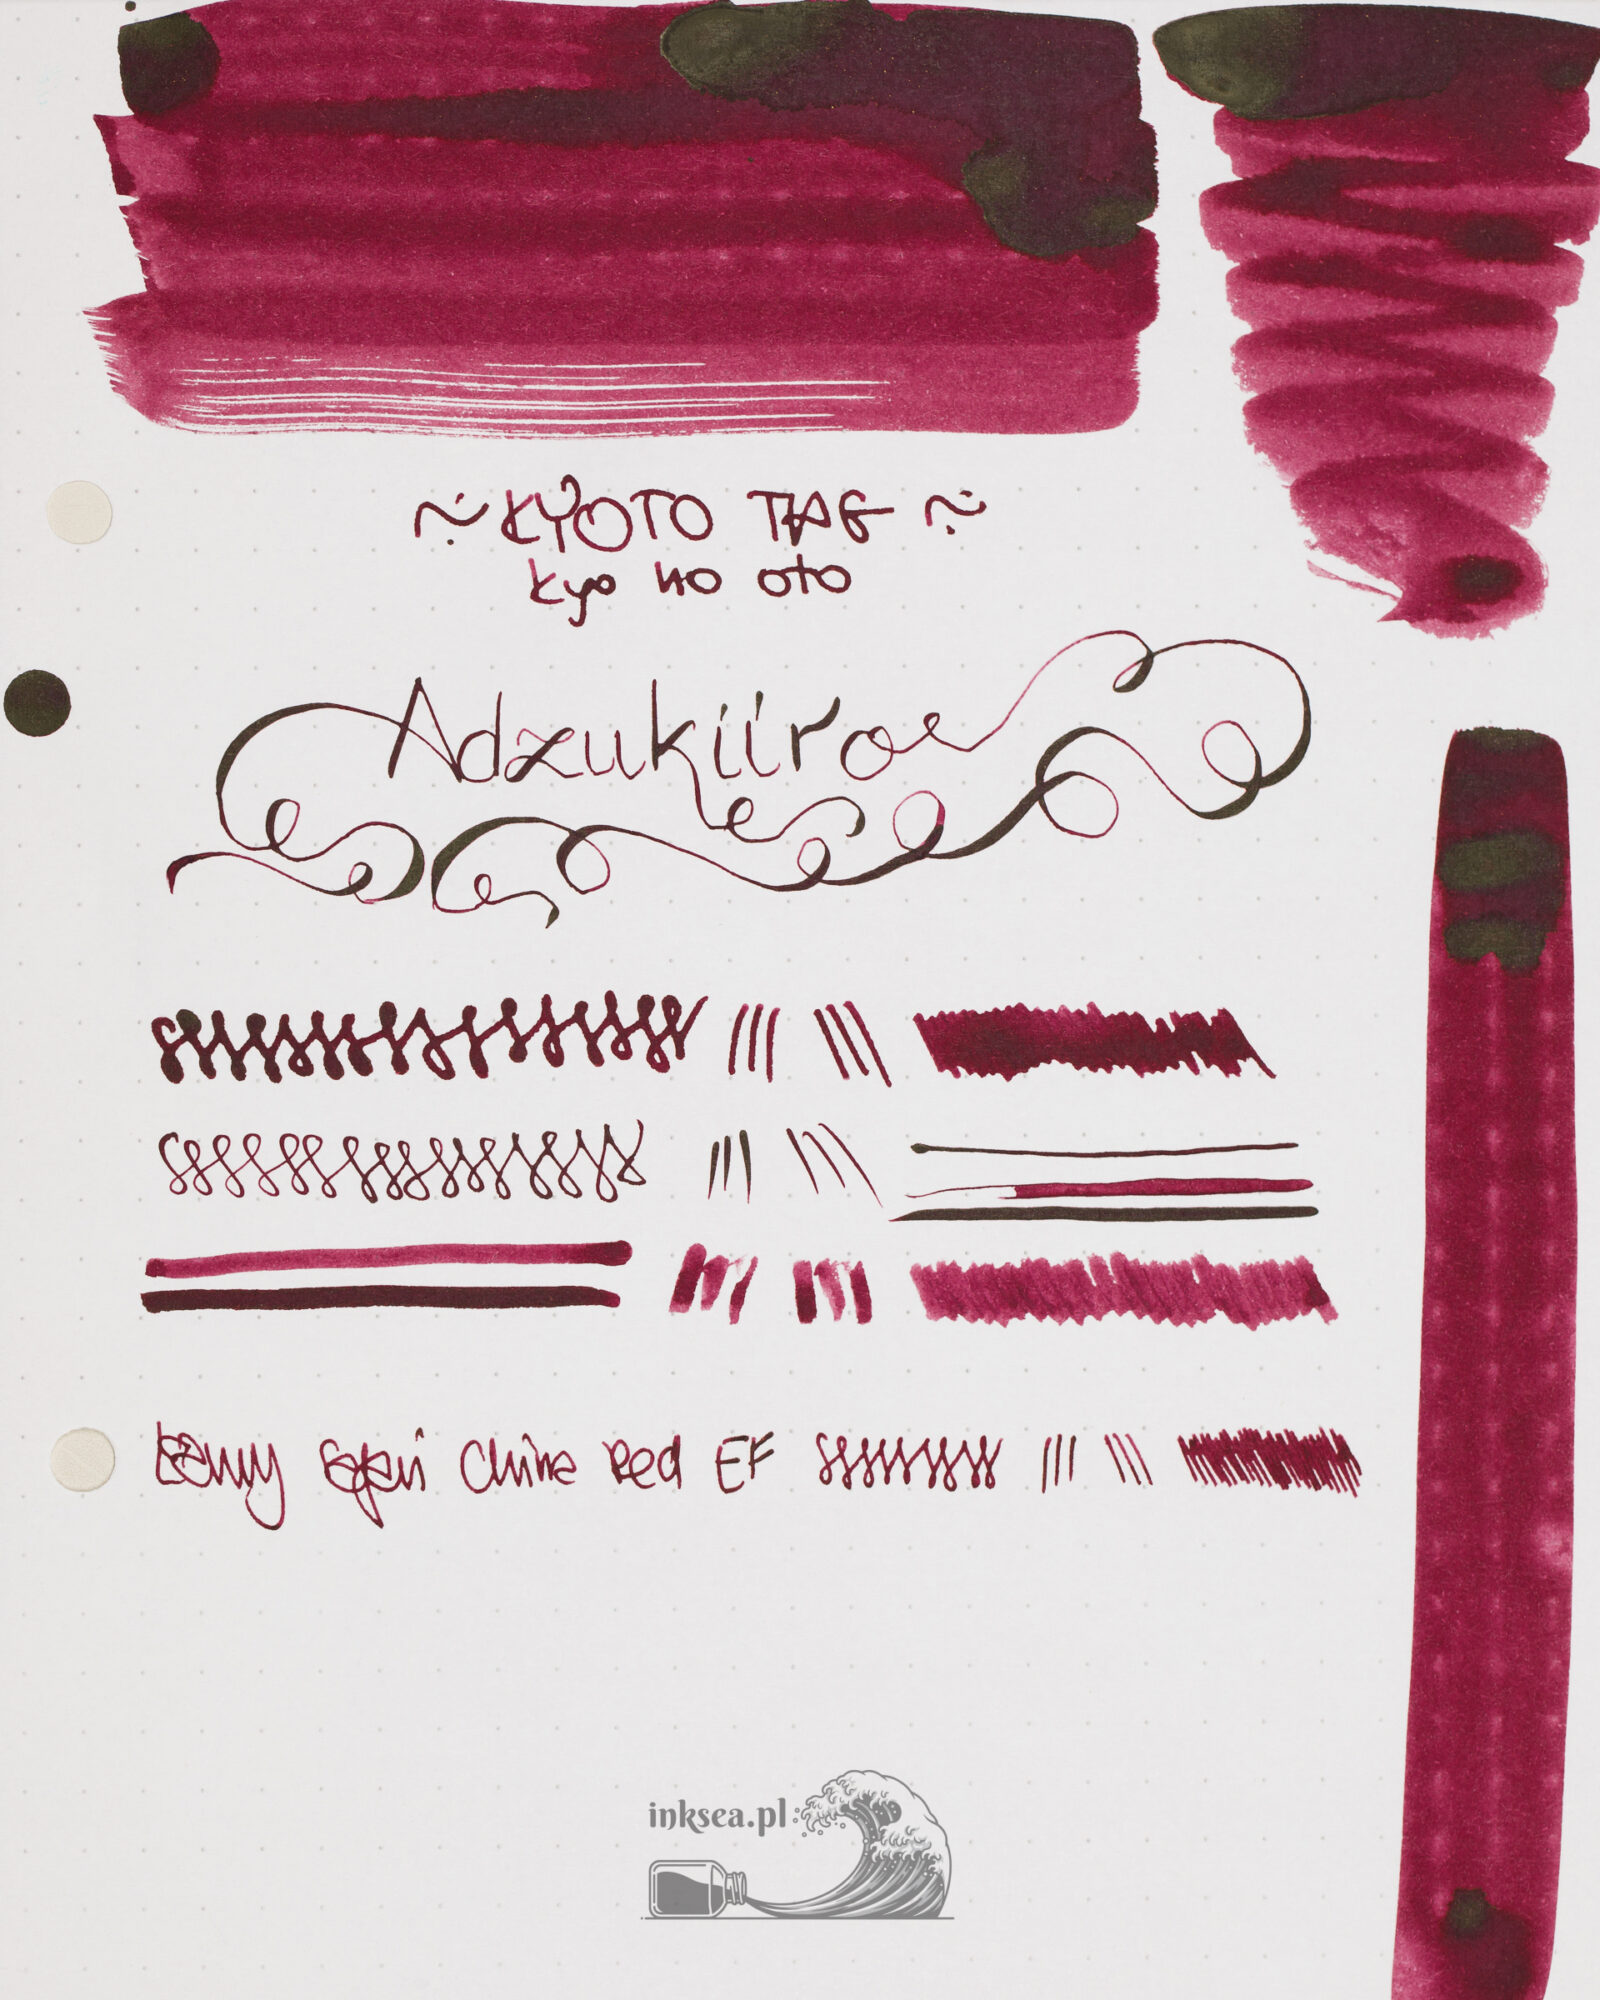 ~ KYOTO TAG ~
kyo no oto
Adzukiiro
Lamy Safari China Red EF
inksea.pl